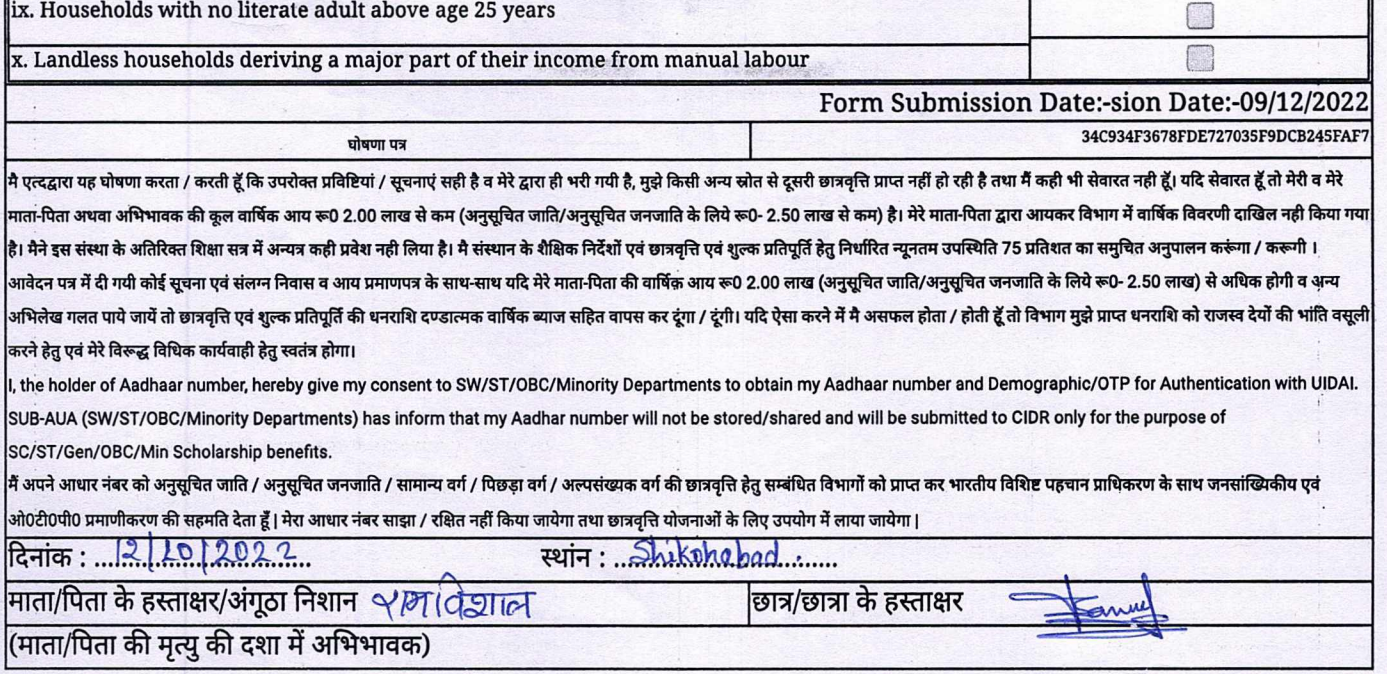 ix. Households with no literate adult above age 25 years
x. Landless households deriving a major part of their income from manual labour
Form Submission Date:-sion Date:-09/12/2022
घोषणा पत्र
34C934F3678FDE727035F9DCB245FAF7
मै एत्दद्वारा यह घोषणा करता / करती हूँ कि उपरोक्त प्रविष्टियां / सूचनाएं सही है व मेरे द्वारा ही भरी गयी है, मुझे किसी अन्य स्रोत से दूसरी छात्रवृत्ति प्राप्त नहीं हो रही है तथा मैं कही भी सेवारत नही हूँ। यदि सेवारत हूँ तो मेरी व मेरे
माता-पिता अथवा अभिभावक की कूल वार्षिक आय रू0 2.00 लाख से कम (अनुसूचित जाति/अनुसूचित जनजाति के लिये रू0- 2.50 लाख से कम) है। मेरे माता-पिता द्वारा आयकर विभाग में वार्षिक विवरणी दाखिल नही किया गया
है। मैने इस संस्था के अतिरिक्त शिक्षा सत्र में अन्यत्र कही प्रवेश नही लिया है। मै संस्थान के शैक्षिक निर्देशों एवं छात्रवृत्ति एवं शुल्क प्रतिपूर्ति हेतु निर्धारित न्यूनतम उपस्थिति 75 प्रतिशत का समुचित अनुपालन करूंगा / करूगी ।
आवेदन पत्र में दी गयी कोई सूचना एवं संलग्न निवास व आय प्रमाणपत्र के साथ-साथ यदि मेरे माता-पिता की वार्षिक आय रू0 2.00 लाख (अनुसूचित जाति/अनुसूचित जनजाति के लिये रू0- 2.50 लाख) से अधिक होगी व अन्य
अभिलेख गलत पाये जायें तो छात्रवृत्ति एवं शुल्क प्रतिपूर्ति की धनराशि दण्डात्मक वार्षिक ब्याज सहित वापस कर दूंगा / दूंगी। यदि ऐसा करने में मै असफल होता / होती हूँ तो विभाग मुझे प्राप्त धनराशि को राजस्व देयों की भांति वसूली
करने हेतु एवं मेरे विरूद्ध विधिक कार्यवाही हेतु स्वतंत्र होगा।
I, the holder of Aadhaar number, hereby give my consent to SW/ST/OBC/Minority Departments to obtain my Aadhaar number and Demographic/OTP for Authentication with UIDAI.
SUB-AUA (SW/ST/OBC/Minority Departments) has inform that my Aadhar number will not be stored/shared and will be submitted to CIDR only for the purpose of
SC/ST/Gen/OBC/Min Scholarship benefits.
मैं अपने आधार नंबर को अनुसूचित जाति / अनुसूचित जनजाति / सामान्य वर्ग / पिछड़ा वर्ग / अल्पसंख्यक वर्ग की छात्रवृत्ति हेतु सम्बंधित विभागों को प्राप्त कर भारतीय विशिष्ट पहचान प्राधिकरण के साथ जनसांख्यिकीय एवं
ओ0टी0पी0 प्रमाणीकरण की सहमति देता हूँ | मेरा आधार नंबर साझा / रक्षित नहीं किया जायेगा तथा छात्रवृत्ति योजनाओं के लिए उपयोग में लाया जायेगा |
दिनांक : ...12/10/2022... स्थांन : ...Shikohabad......
माता/पिता के हस्ताक्षर/अंगूठा निशान रामविशाल छात्र/छात्रा के हस्ताक्षर
(माता/पिता की मृत्यु की दशा में अभिभावक)